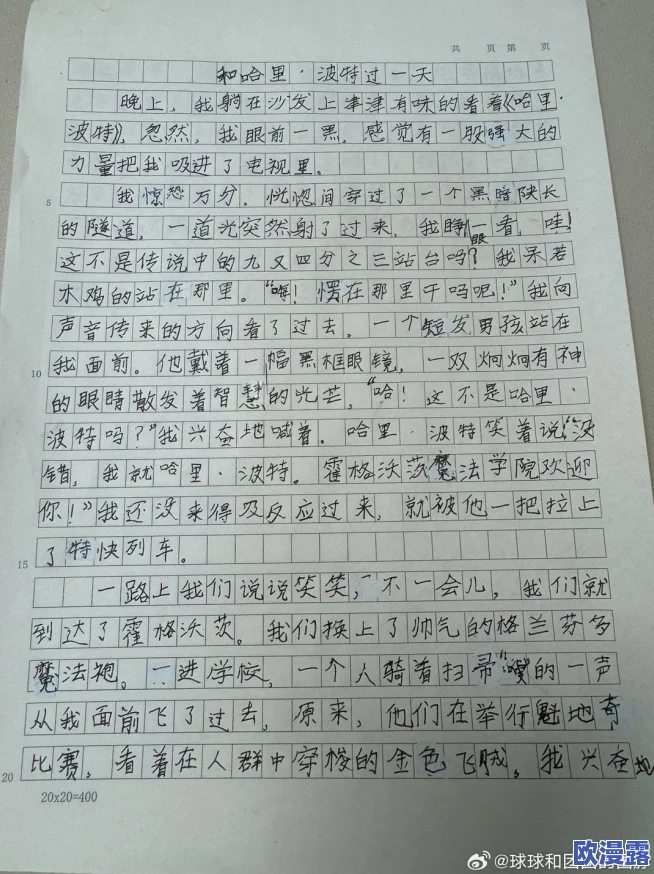 共 页第 页
和哈里·波特过一天
晚上，我躺在沙发上津津有味的看着《哈里·
波特》，忽然，我眼前一黑，感觉有一股强大的
力量把我吸进了电视里。
我惊恐万分，恍惚间穿过了一个黑暗陕长
5
的隧道，一道光突然射了过来，我睁眼一看，哇！
这不是传说中的九又四分之三站台吗？我呆若
木鸡的站在那里。“嗨！愣在那里干吗呢！”我向
声音传来的方向看了过去，一个短发男孩站在
我面前。他戴着一幅黑框眼镜，一双炯炯有神
10
的眼睛散发着智慧的光芒，“哈！这不是哈里·
波特吗？”我兴奋地喊着。哈里·波特笑着说：“没
错，我就哈里·波特。霍格沃茨魔法学院欢迎
你！”我还没来得及反应过来，就被他一把拉上
了特快列车。
15
一路上我们说说笑笑，不一会儿，我们就
到达了霍格沃茨。我们换上了帅气的格兰芬多
魔法袍。一进学校，一个人骑着扫帚“嗖”的一声
从我面前飞了过去，原来，他们在举行魁地奇
比赛，看着在人群中穿梭的金色飞贼，我兴奋地
20
20x20=400
@球球和团团的
欧漫露